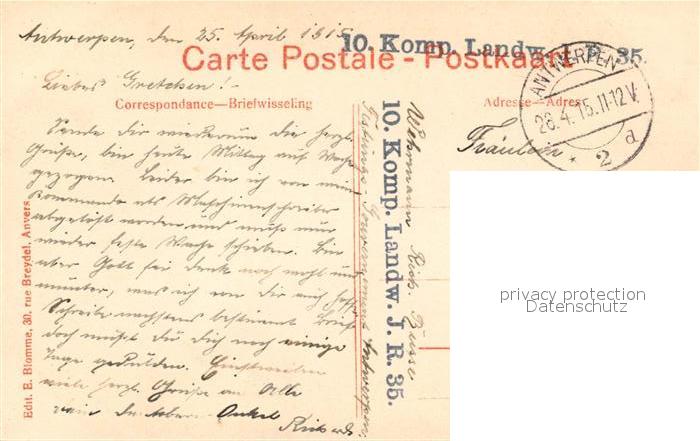 Antwerpen, den 25. April 1915
10. Komp. Landw. J. R. 35.
Carte Postale - Postkaart
ANTWERPEN
26.4.15.11-12V.
* 2 d
Liebes Gretchen! -
Correspondance—Briefwisseling
Adresse—Adres
Fräulein
Sende Dir wiederum die herzl.
Grüße, bin heute Mittag auf Wache
gezogen. Leider bin ich von mein
Kommando als Maschinenschreiber
abgelöst worden und muß nun
wieder feste Wache schieben. Bin
aber Gott sei dank noch wohl und
munter, was ich von Dir auch hoffe
Schreibe nächstens bestimmt Brief
doch mußt Du Dich noch einige
Tage gedulden. Einstweilen
viele herzl. Grüße an Alle
Dein Onkel
Richard
Wehrmann Rich. Busse
10. Komp. Landw. J. R. 35.
Festungs-Gouvernement Antwerpen
Edit. E. Blomme, 30, rue Breydel, Anvers
privacy protection
Datenschutz